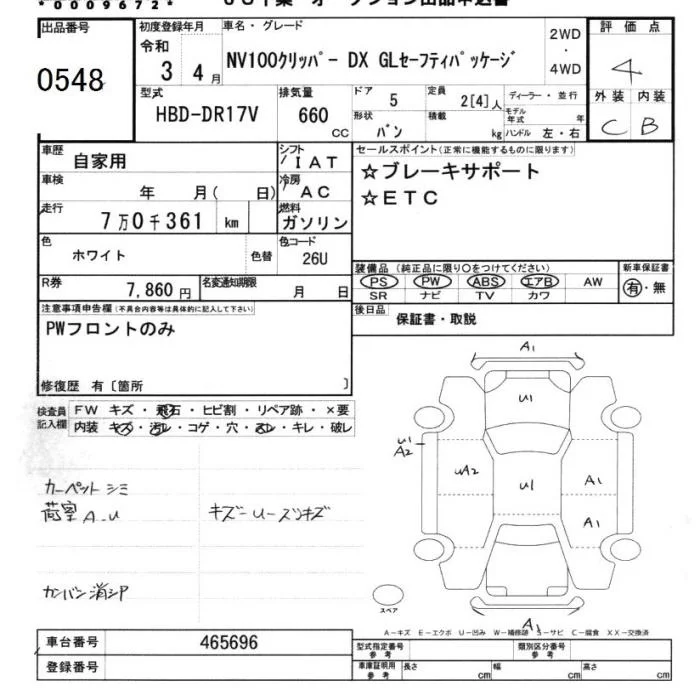 *0009672*
出品番号
0548
初度登録年月
令和
3 4月
車名・グレード
NV100クリッパー DX GLセーフティパッケージ
2WD
・
4WD
評価点
4
外装 内装
C B
型式
HBD-DR17V
排気量
660
CC
ドア
5
定員
2[4]人
ディーラー・並行
形状
バン
積載
kg
モデル年式
年
ハンドル 左・右
車歴
自家用
シフト
IAT
車検
年 月( 日)
冷房
AC
走行
7万0千361 km
燃料
ガソリン
セールスポイント(正常に機能するものに限ります)
☆ブレーキサポート
☆ETC
色
ホワイト
色替
色コード
26U
装備品(純正品に限り○をつけてください)
PS PW ABS エアB AW
SR ナビ TV カワ
新車保証書
有・無
R券
7,860円
名変通知期限
月 日
後日品
保証書・取説
注意事項申告欄(不具合内容等は具体的に記入して下さい)
PWフロントのみ
修復歴 有〔箇所 〕
検査員記入欄
FW キズ・飛石・ヒビ割・リペア跡・×要
内装 キズ・汚レ・コゲ・穴・スレ・キレ・破レ
カーペット シミ
荷室 A.U
キズ−U−スリキズ
カンバン消シP
A1
U1
U1
A2
UA2
U1
A1
A1
A1
スペア
A−キズ E−エクボ U−凹み W−補修跡 S−サビ C−腐食 XX−交換済
車台番号
465696
登録番号
型式指定番号
参考
類別区分番号
参考
車庫証明用
参考
長さ
cm
幅
cm
高さ
cm